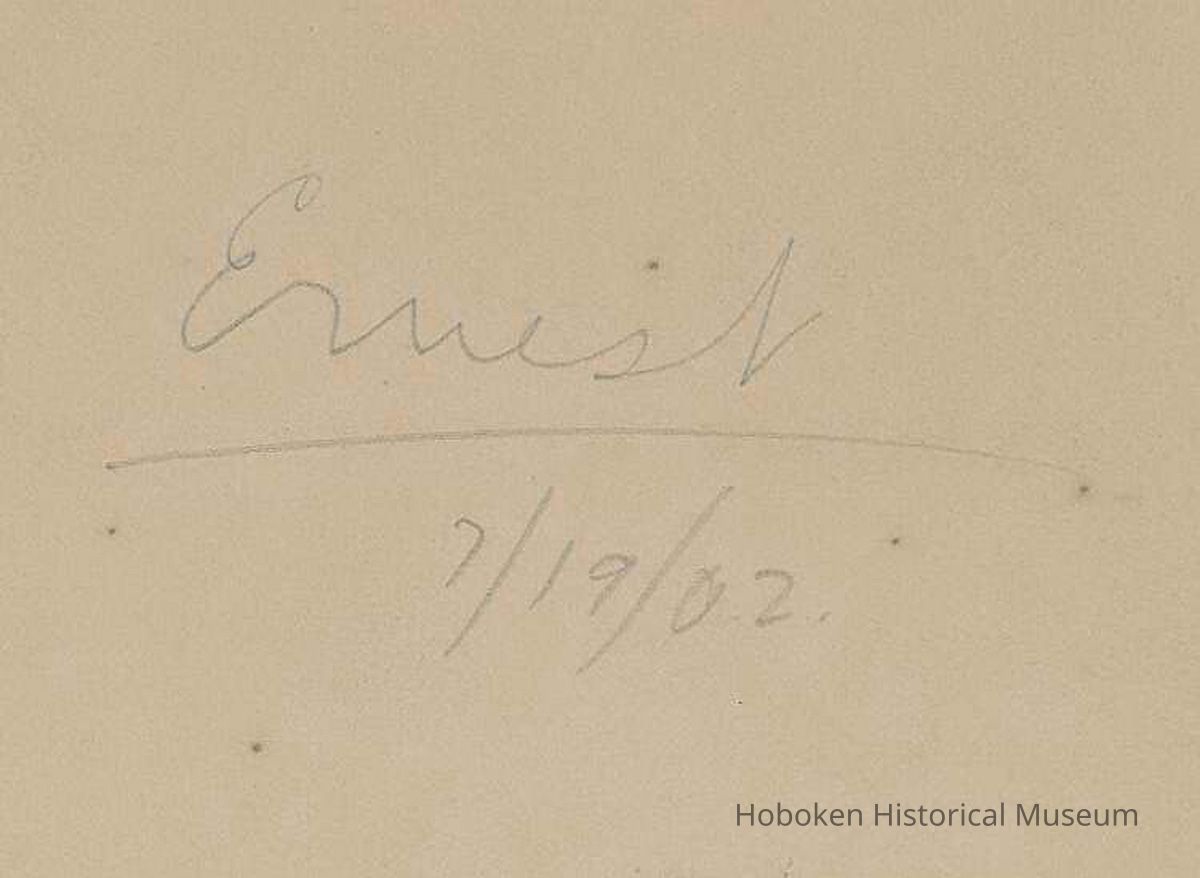 Ernest
7/19/02.
Hoboken Historical Museum